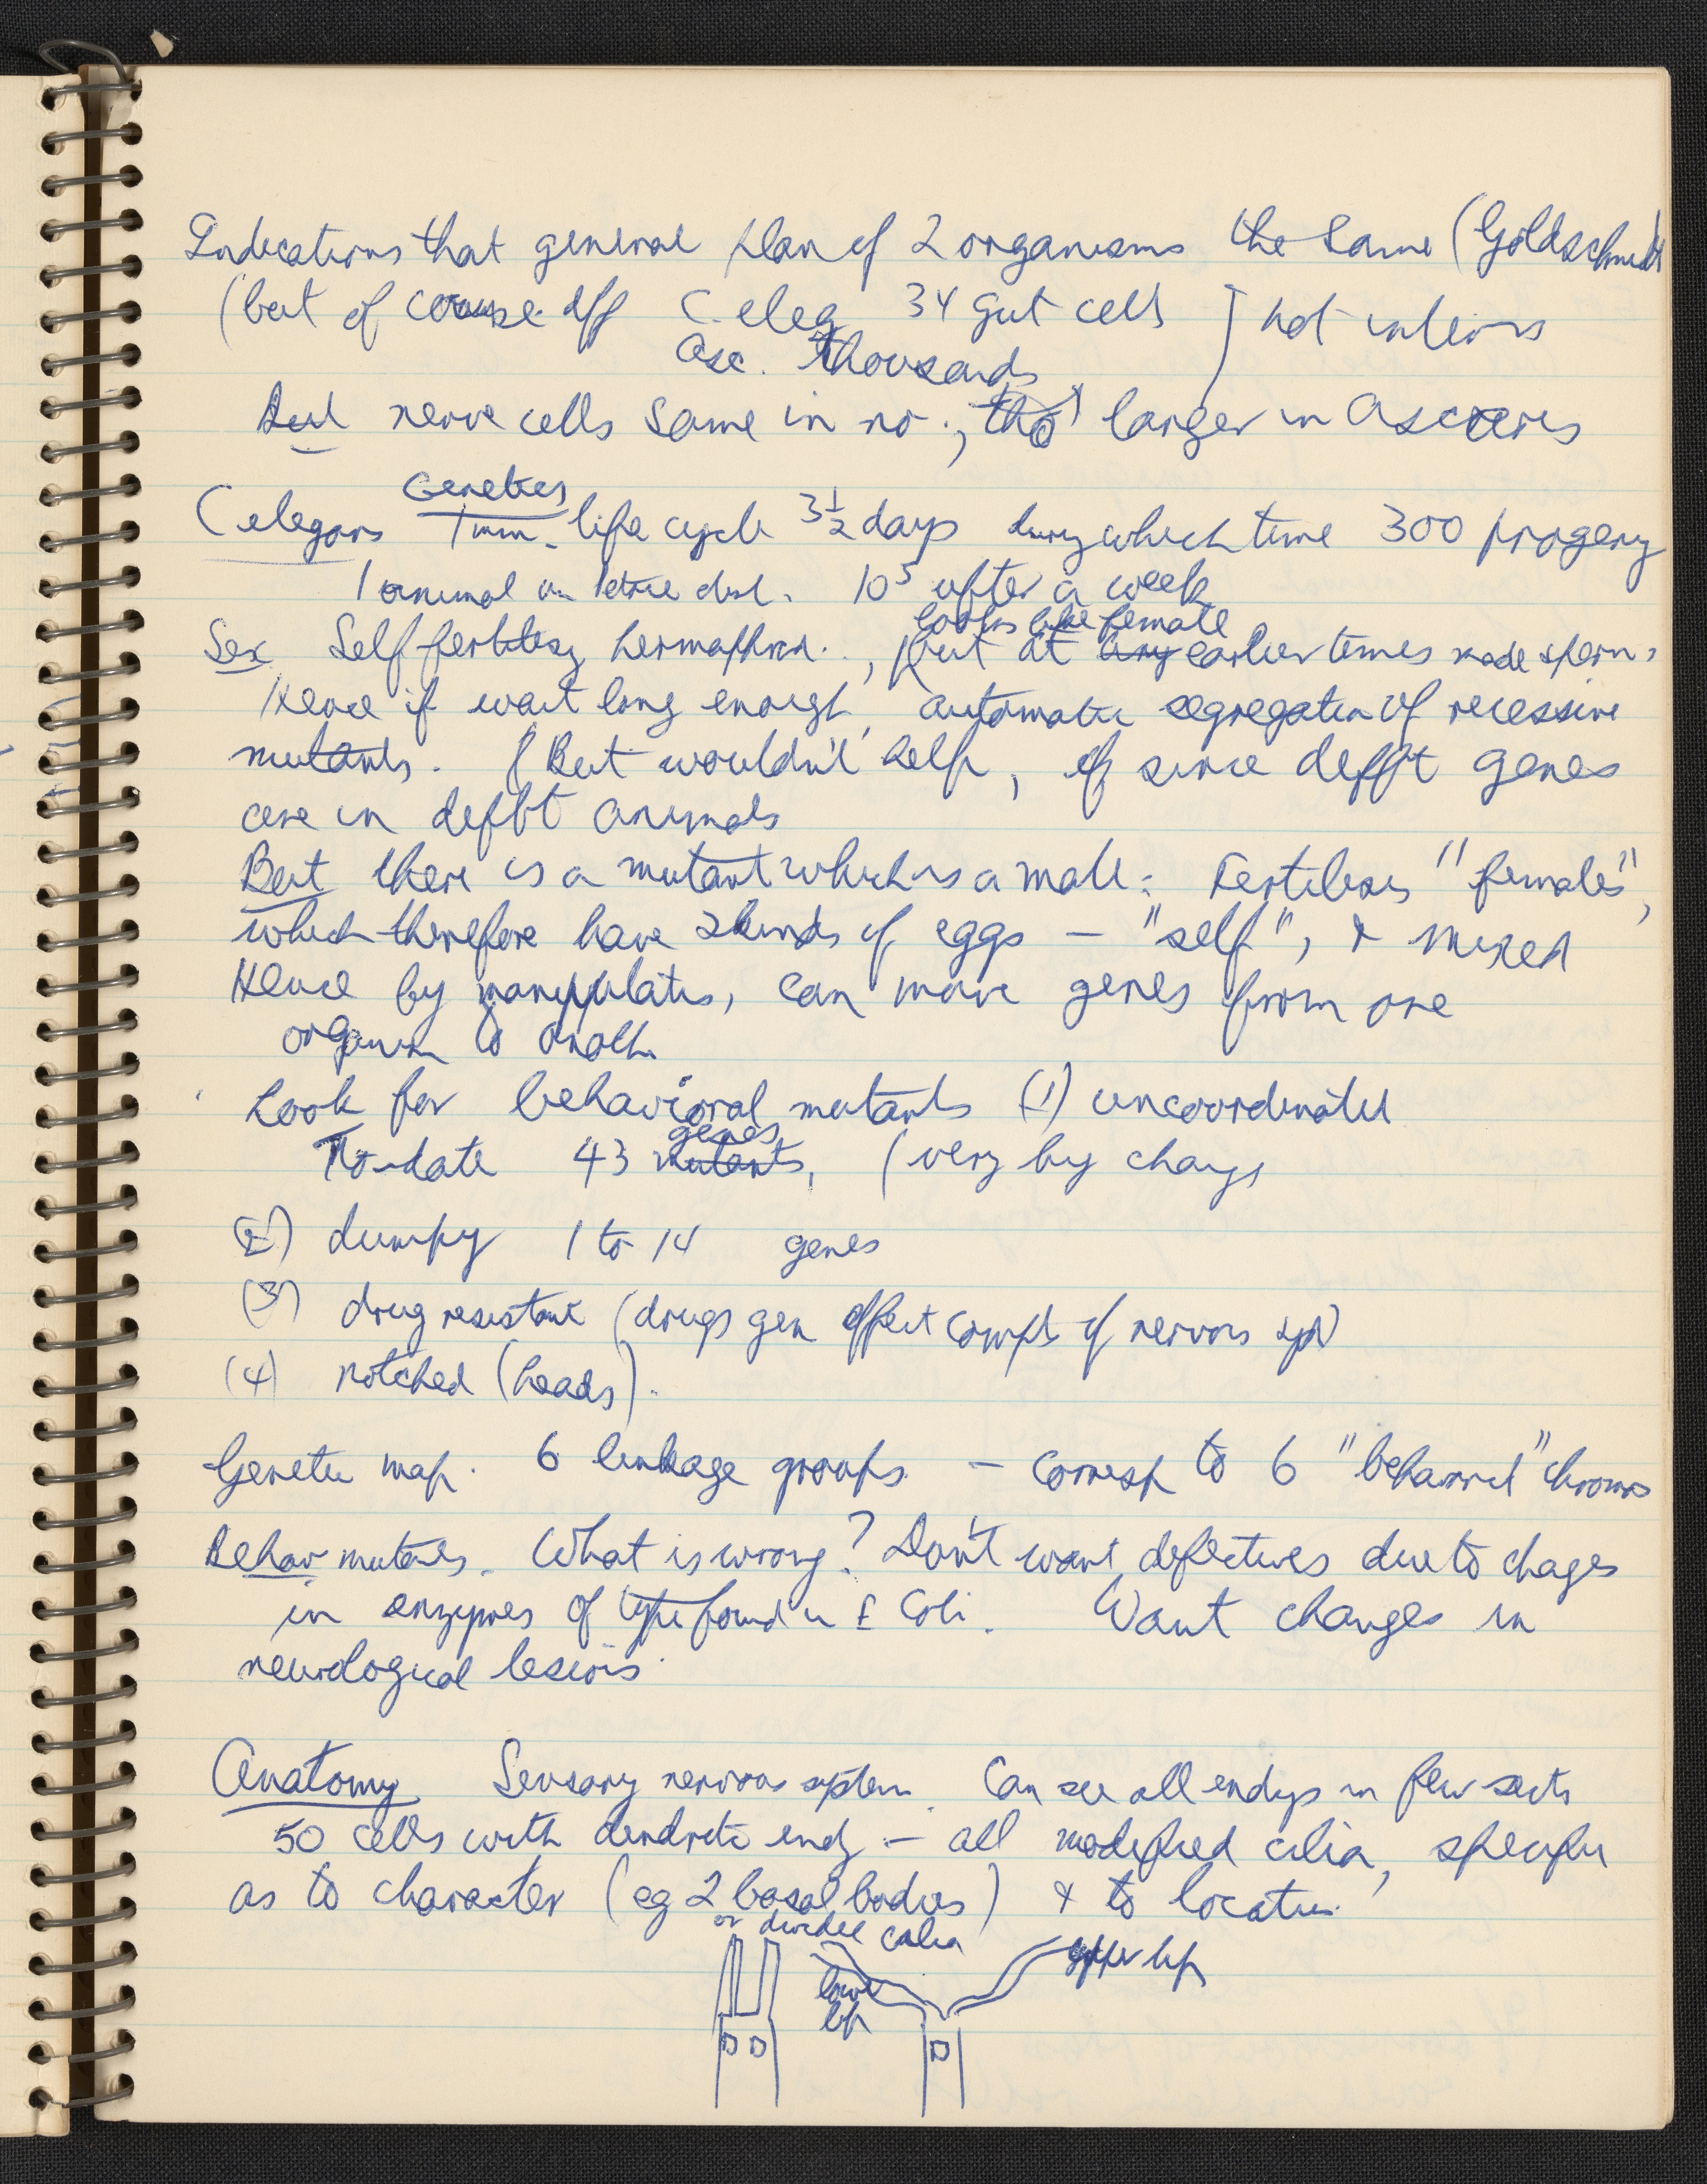 Indications that general plan of 2 organisms the same (Goldschmidt
(but of course diff C. eleg 34 gut cells
Asc. thousands
] not
But nerve cells same in no., tho larger in Ascaris
Genetics
C elegans 1 mm. life cycle 3½ days during which time 300 progeny
1 animal in Petrie dish. 10⁵ after a week
looks like female
Sex Self fertilizg hermaphrod., but at any earlier times made sperm,
Hence if wait long enough, automatic segregation of recessive
mutants. (But wouldn't help, since defft genes
are in defft animals
But there is a mutant which is a male: Fertilises "females",
which therefore have 2 kinds of eggs – "self", & mixed
Hence by manipulatn, can move genes from one
organism to anoth.
Look for behavioral mutants (1) uncoordinated
genes
To-date 43 mutants, (very big chang
(2) dumpy 1 to 14 genes
(3) drug resistant (drugs gen affect compts of nervous sys)
(4) notched (heads).
Genetic map. 6 linkage groups. – corresp to 6 chroms
Behav mutants. What is wrong? Don't want defectives due to chages
in enzymes of type found in E Coli. Want changes in
neurological lesions.
Anatomy Sensory nervous system. Can see all endgs in few sects
50 cells with dendritic endg – all modified cilia, specific
as to character (eg 2 basal bodies) & to location.
or divided cilia
upper lip
lower
lip